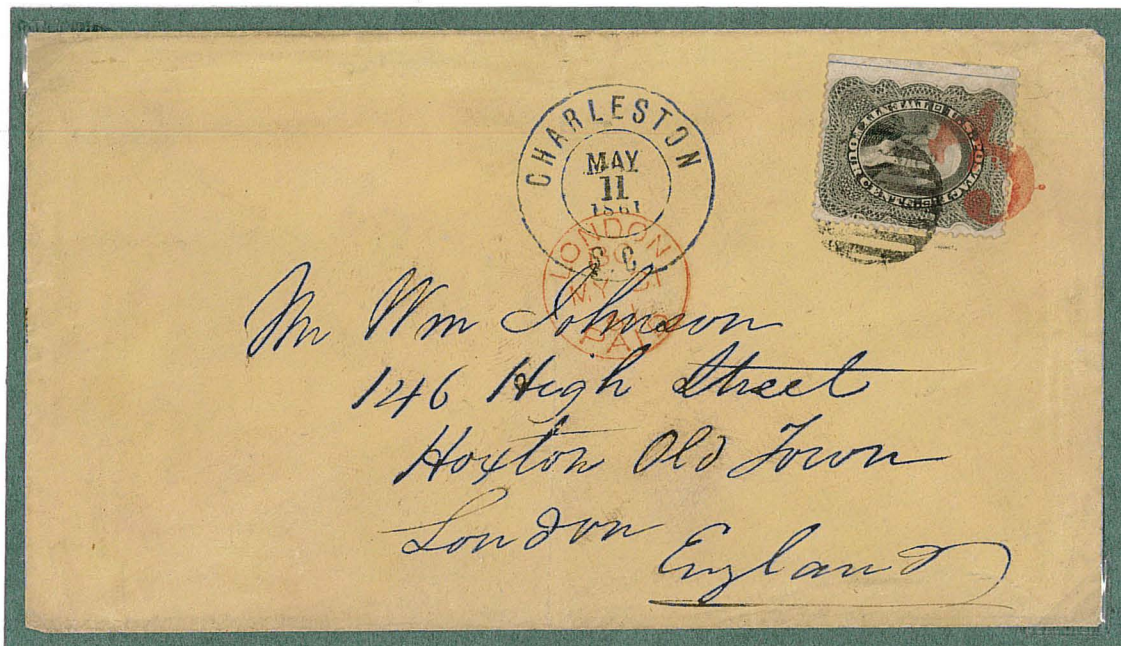 CHARLESTON
MAY
11
1861
S.C
LONDON
MY
PAID
U.S. POSTAGE
Mr Wm Johnson
146 High Street
Hoxton Old Town
London
England